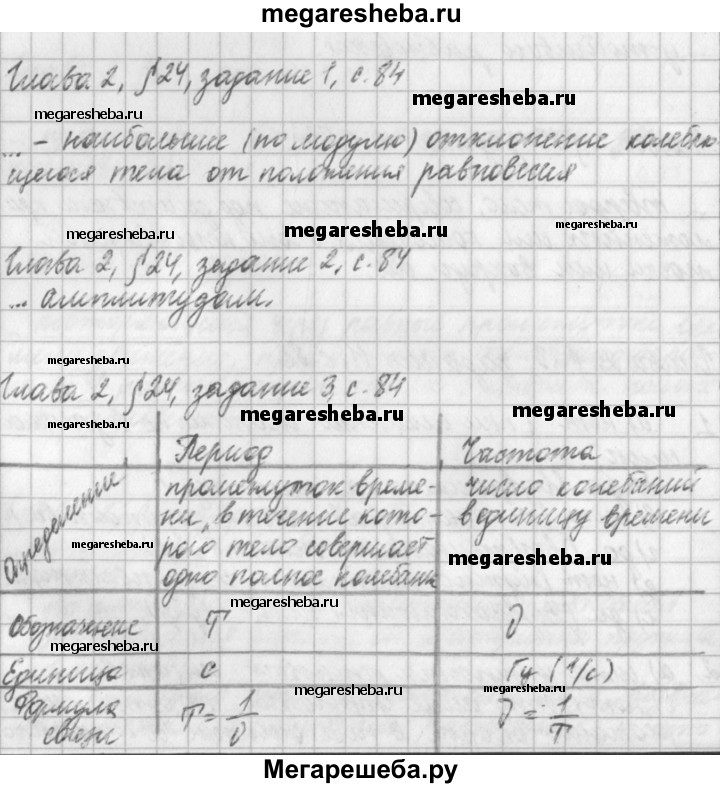 megaresheba.ru
Глава 2, §24, задание 1, с. 84
megaresheba.ru
megaresheba.ru
... – наибольшие (по модулю) отклонение колеблю
щегося тела от положения равновесия
megaresheba.ru
megaresheba.ru
megaresheba.ru
Глава 2, §24, задание 2, с. 84
... амплитудами.
megaresheba.ru
megaresheba.ru
Глава 2, §24, задание 3, с. 84
megaresheba.ru
megaresheba.ru
megaresheba.ru
Период Частота
Определение
промежуток време-
ни, в течение кото-
рого тело совершает
одно полное колебание
число колебаний
в единицу времени
megaresheba.ru
megaresheba.ru
megaresheba.ru
Обозначение T ν
megaresheba.ru
Единица с Гц (1/с)
megaresheba.ru
megaresheba.ru
Формула
связи
T = 1/ν ν = 1/T
Мегарешеба.ру